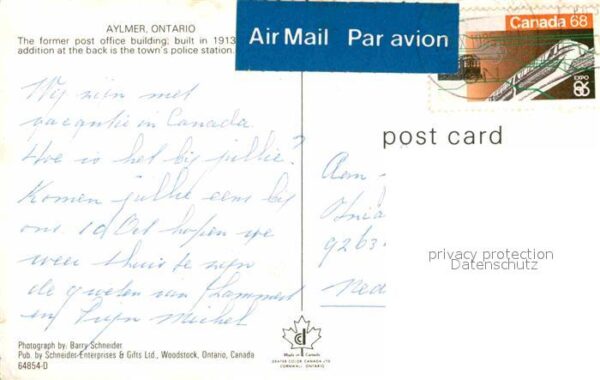 AYLMER, ONTARIO
The former post office building; built in 1913
addition at the back is the town's police station.
Air Mail Par avion
Canada 68
EXPO
86
post card
Wij zijn met
vacantie in Canada.
Hoe is het bij jullie?
Komen jullie eens bij
ons 1 Oct hopen we
weer thuis te zijn
de groeten van Lammert
en Michel
Aan
9263
Ned
privacy protection
Datenschutz
Photograph by: Barry Schneider
Pub. by Schneider Enterprises & Gifts Ltd., Woodstock, Ontario, Canada
64854-D
Made in Canada
GRAFEK COLOR CANADA LTD
CORNWALL ONTARIO